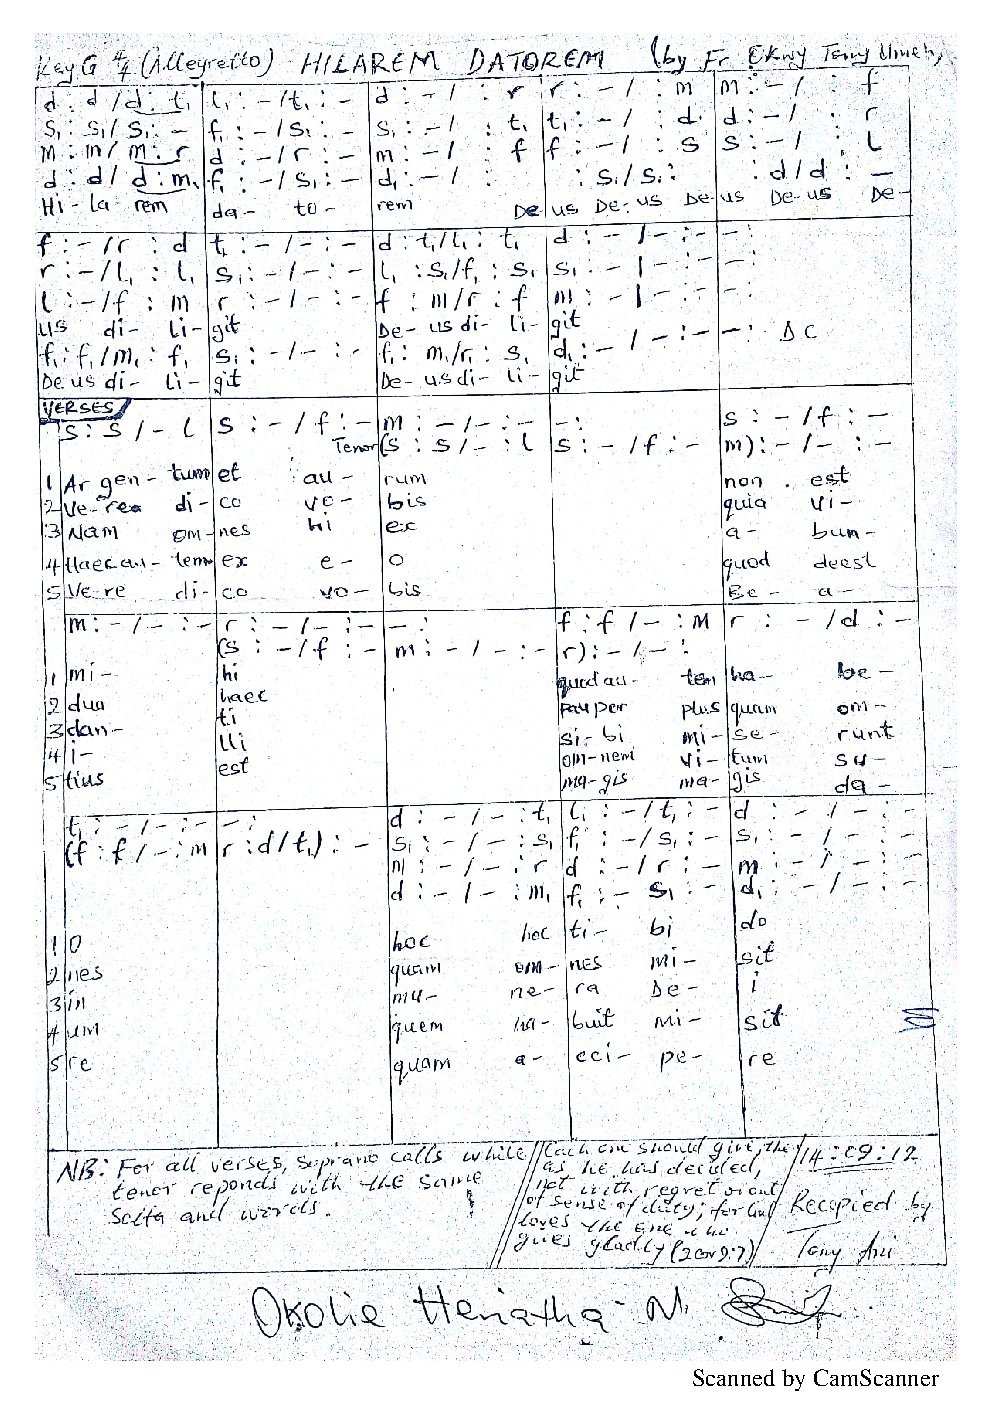 Key G 4/4 (Allegretto) HILAREM DATOREM (by Fr. Okwy Tony Umeh)
d : d / d : t₁ l₁ : - / t₁ : - d : - / : r r : - / : m m : - / : f
s₁ : s₁ / s₁ : - f₁ : - / s₁ : - s₁ : - / : t₁ t₁ : - / : d d : - / : r
m : m / m : r d : - / r : - m : - / : f f : - / : s s : - / : l
d : d / d : m₁ f₁ : - / s₁ : - d₁ : - / : : s₁ / s₁ : : d / d : -
Hi - la - rem da - to - rem De us De - us De - us De - us De -
f : - / r : d t₁ : - / - : - d : t₁ / l₁ : t₁ d : - / - : - - :
r : - / l₁ : l₁ s₁ : - / - : - l₁ : s₁ / f₁ : s₁ s₁ : - / - : - - :
l : - / f : m r : - / - : - f : m / r : f m : - / - : - - :
us di - li - git De - us di - li - git
f₁ : f₁ / m₁ : f₁ s₁ : - / - : - f₁ : m₁ / r₁ : s₁ d₁ : - / - : - - : DC
De us di - li - git De - us di - li - git
VERSES
s : s / - l s : - / f : - m : - / - : - - : s : - / f : -
Tenor (s : s / - : l s : - / f : - m) : - / - :
1 Ar gen - tum et au - rum non est
2 Ve - re di - co vo - bis quia vi -
3 Nam om - nes hi ex a - bun -
4 Haec au - tem ex e - o quod deest
5 Ve - re di - co vo - bis Be - a -
m : - / - : - r : - / - : - - : f : f / - : m r : - / d : -
(s : - / f : - m : - / - : - r) : - / - :
1 mi - hi quod au - tem ha - be -
2 dua haec pauper plus quam om -
3 dan - ti si - bi mi - se - runt
4 i - lli om - nem vi - tum su -
5 tius est ma - gis ma - gis da -
t₁ : - / - : - - : d : - / - : t₁ l₁ : - / t₁ : - d : - / - : -
(f : f / - : m r : d / t₁) : - s₁ : - / - : s₁ f₁ : - / s₁ : - s₁ : - / - : -
m : - / - : r d : - / r : - m : - / - : -
d : - / - : m₁ f₁ : - s₁ : - d₁ : - / - : -
1 O hoc hoc ti - bi do
2 nes quam om - nes mi - sit
3 in mu - ne - ra De - i
4 um quem ha - buit mi - sit
5 re quam a - cci - pe - re
NB: For all verses, soprano calls while
tenor reponds with the same
solfa and words.
Each one should give, then
as he has decided,
not with regret or out
of sense of duty; for God
loves the one who
gives gladly (2 Cor 9:7)
14:09:12
Recopied by
Tony Ani
Okolie Henrietta N.
Scanned by CamScanner